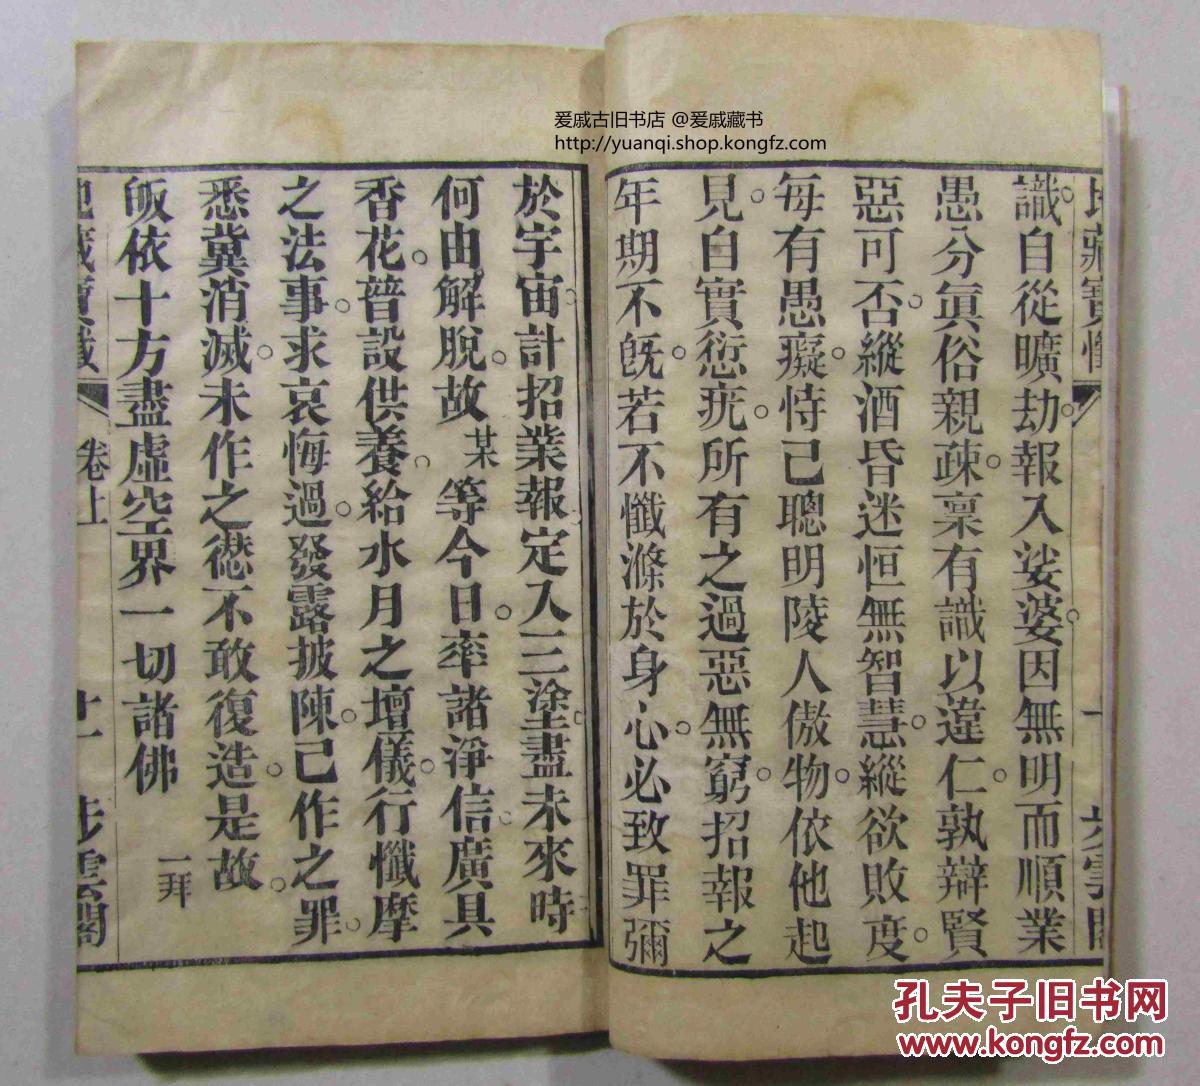 爱戚古旧书店 @爱戚藏书
http://yuanqi.shop.kongfz.com
識自從曠劫報入娑婆因無明而順業
愚分眞俗親疎稟有識以違仁孰辯賢
惡可否縱酒昏迷恒無智慧縱欲敗度
每有愚癡恃己聰明陵人傲物依他起
見自實愆疣所有之過惡無窮招報之
年期不旣若不懺滌於身心必致罪彌
於宇宙計招業報定入三塗盡未來時
何由解脫故某等今日率諸淨信廣具
香花普設供養給水月之壇儀行懺摩
之法事求哀悔過發露披陳已作之罪
悉冀消滅未作之愆不敢復造是故
皈依十方盡虛空界一切諸佛 一拜
卷上
十一 步雲閣
孔夫子旧书网
KONGFZ.COM